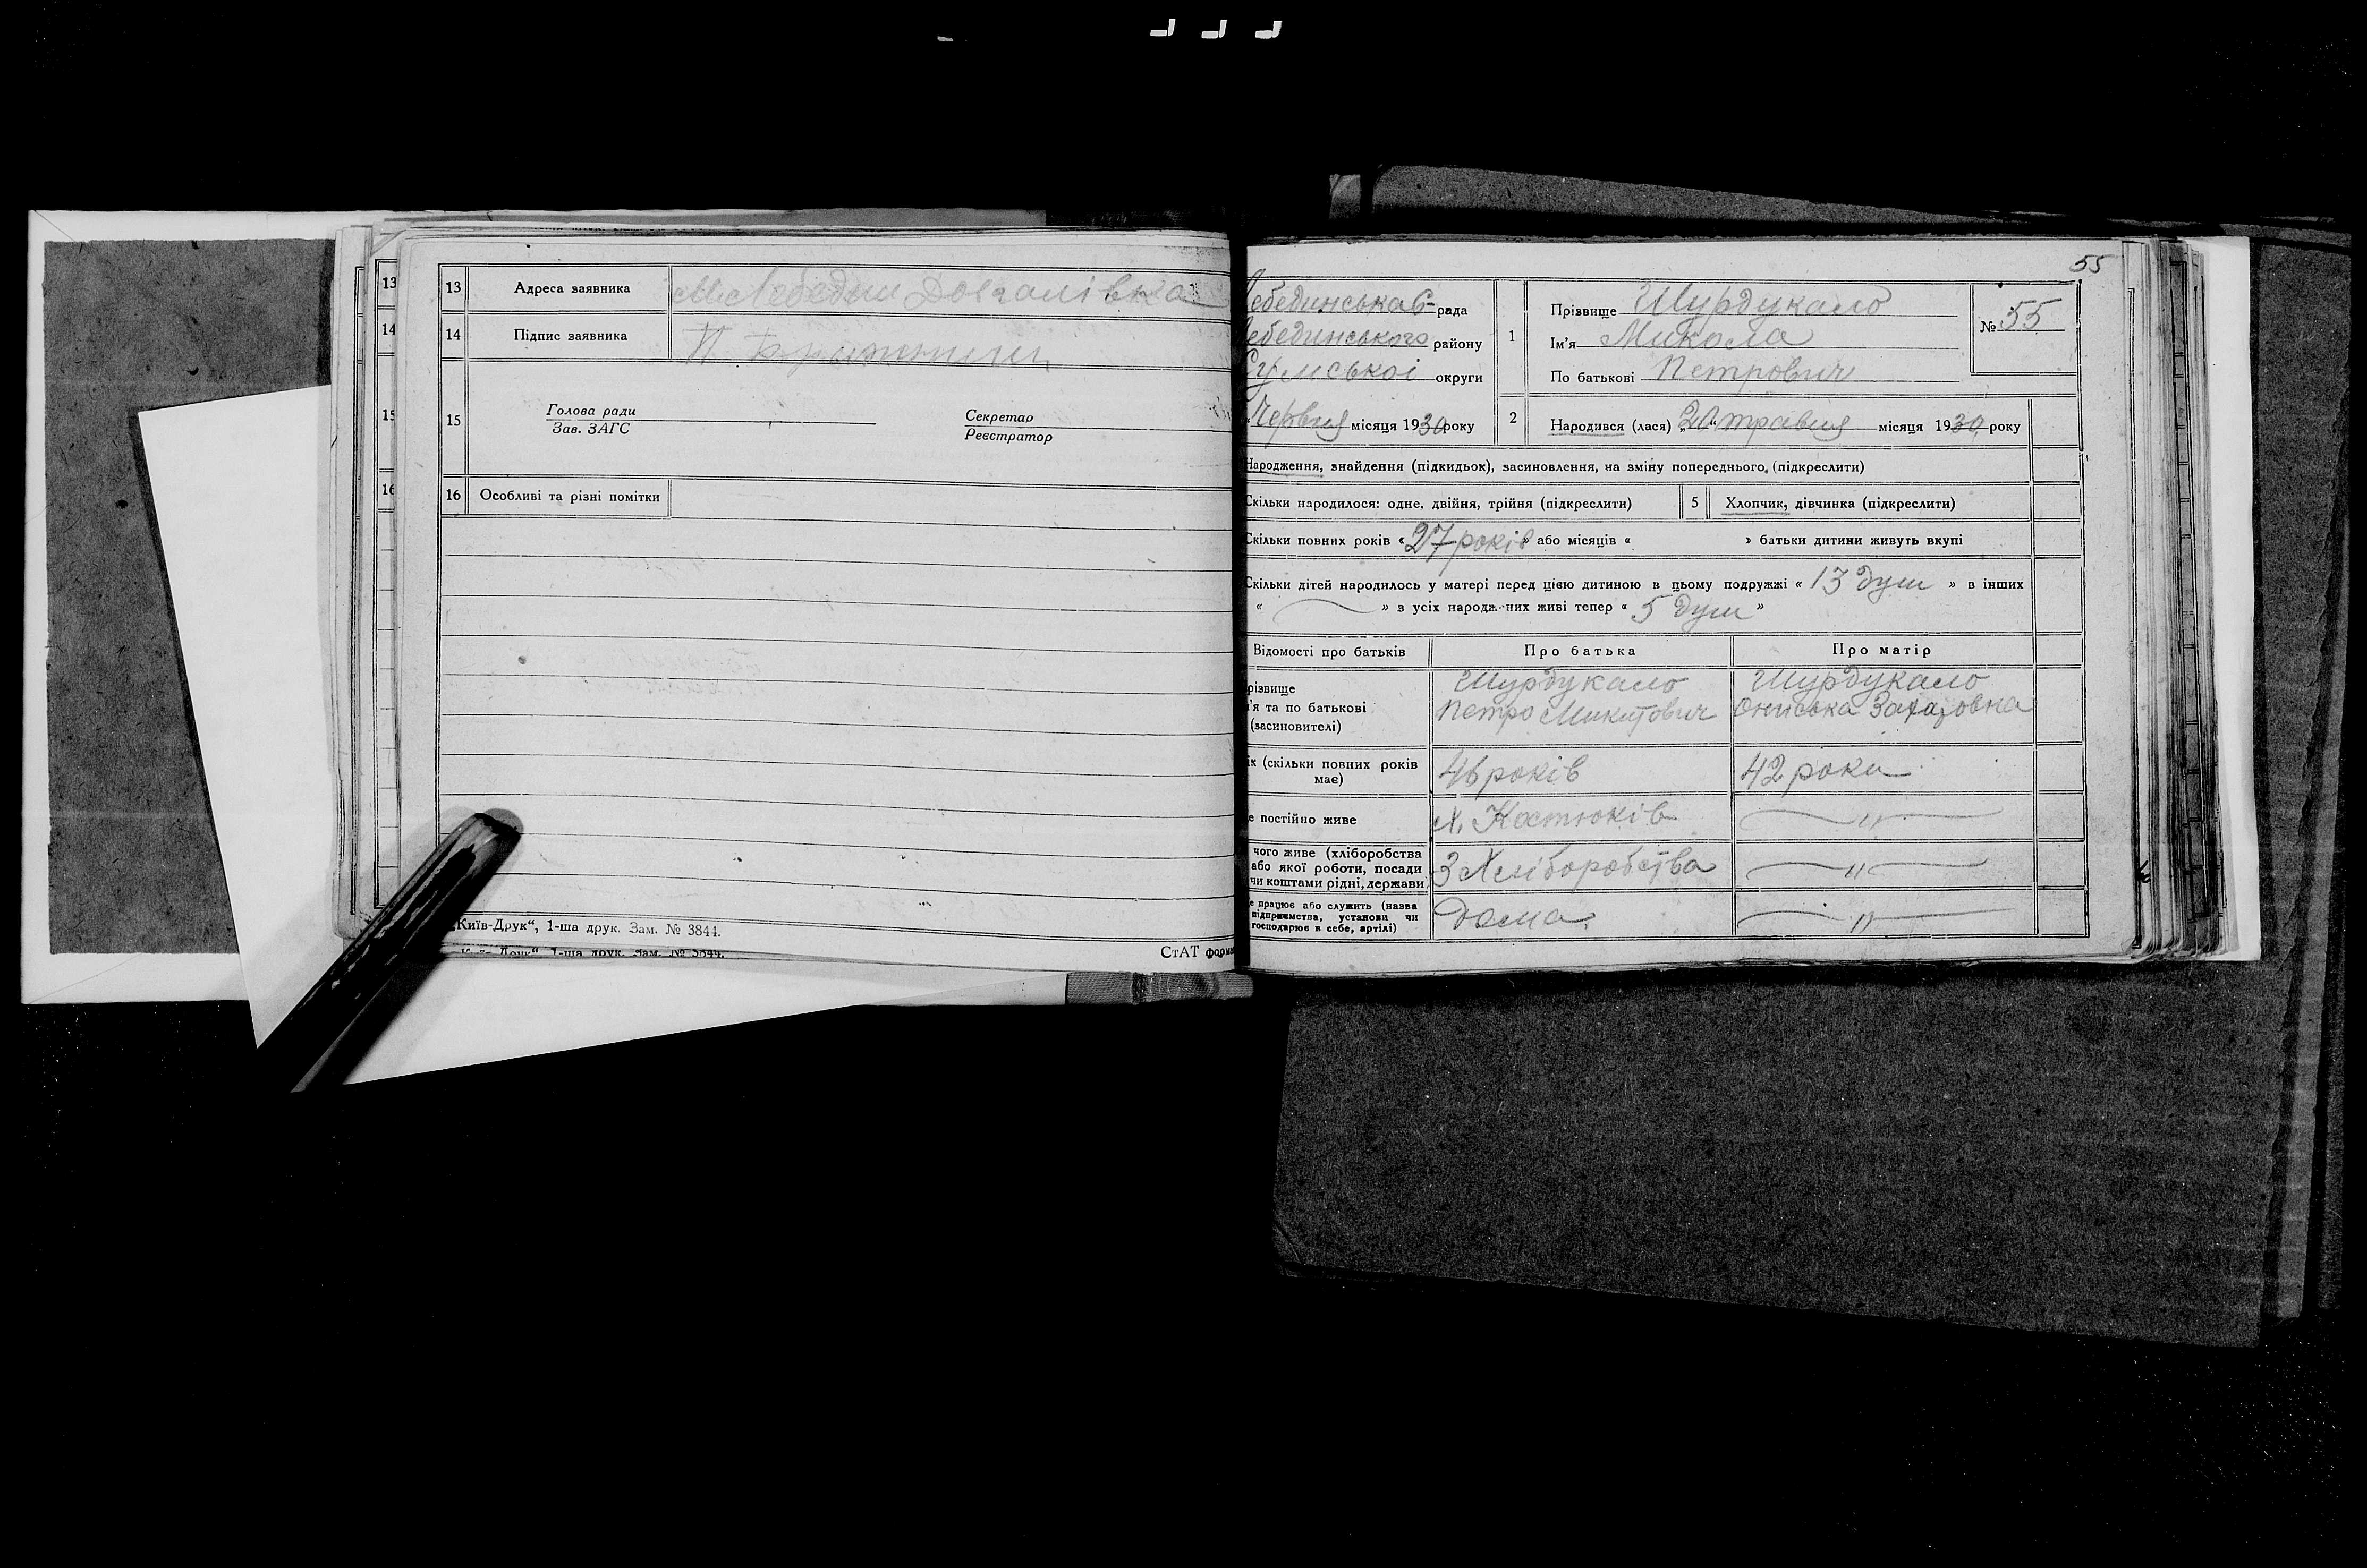 13 Адреса заявника М. Лебедин Довгалівка
14 Підпис заявника П
15 Голова ради Секретар
Зав. ЗАГС Реєстратор
16 Особливі та різні помітки
„Київ-Друк“, 1-ша друк. Зам. № 3844.
СтАТ форма
13
14
15
16
55
Лебединська С- рада
Лебединського району
Сумської округи
Червня місяця 1930 року
1 Прізвище Шурдукало
Ім'я Микола
По батькові Петрович
№ 55
2 Народився (лася) „20“ травня місяця 1930 року
Народження, знайдення (підкидьок), засиновлення, на зміну попереднього. (підкреслити)
Скільки народилося: одне, двійня, трійня (підкреслити) 5 Хлопчик, дівчинка (підкреслити)
Скільки повних років « 27 років » або місяців « » батьки дитини живуть вкупі
Скільки дітей народилось у матері перед цією дитиною в цьому подружжі « 13 душ » в інших
« — » з усіх народжених живі тепер « 5 душ »
Відомості про батьків Про батька Про матір
різвище
'я та по батькові
(засиновителі)
Шурдукало
Петро Микитович
Шурдукало
Ониська Захаровна
ік (скільки повних років
має)
46 років 42 роки
е постійно живе х. Костюків — " —
чого живе (хліборобства
або якої роботи, посади
чи коштами рідні, держави)
З Хліборобства — " —
е працює або служить (назва
підприємства, установи чи
господарює в себе, артілі)
Дома. — " —